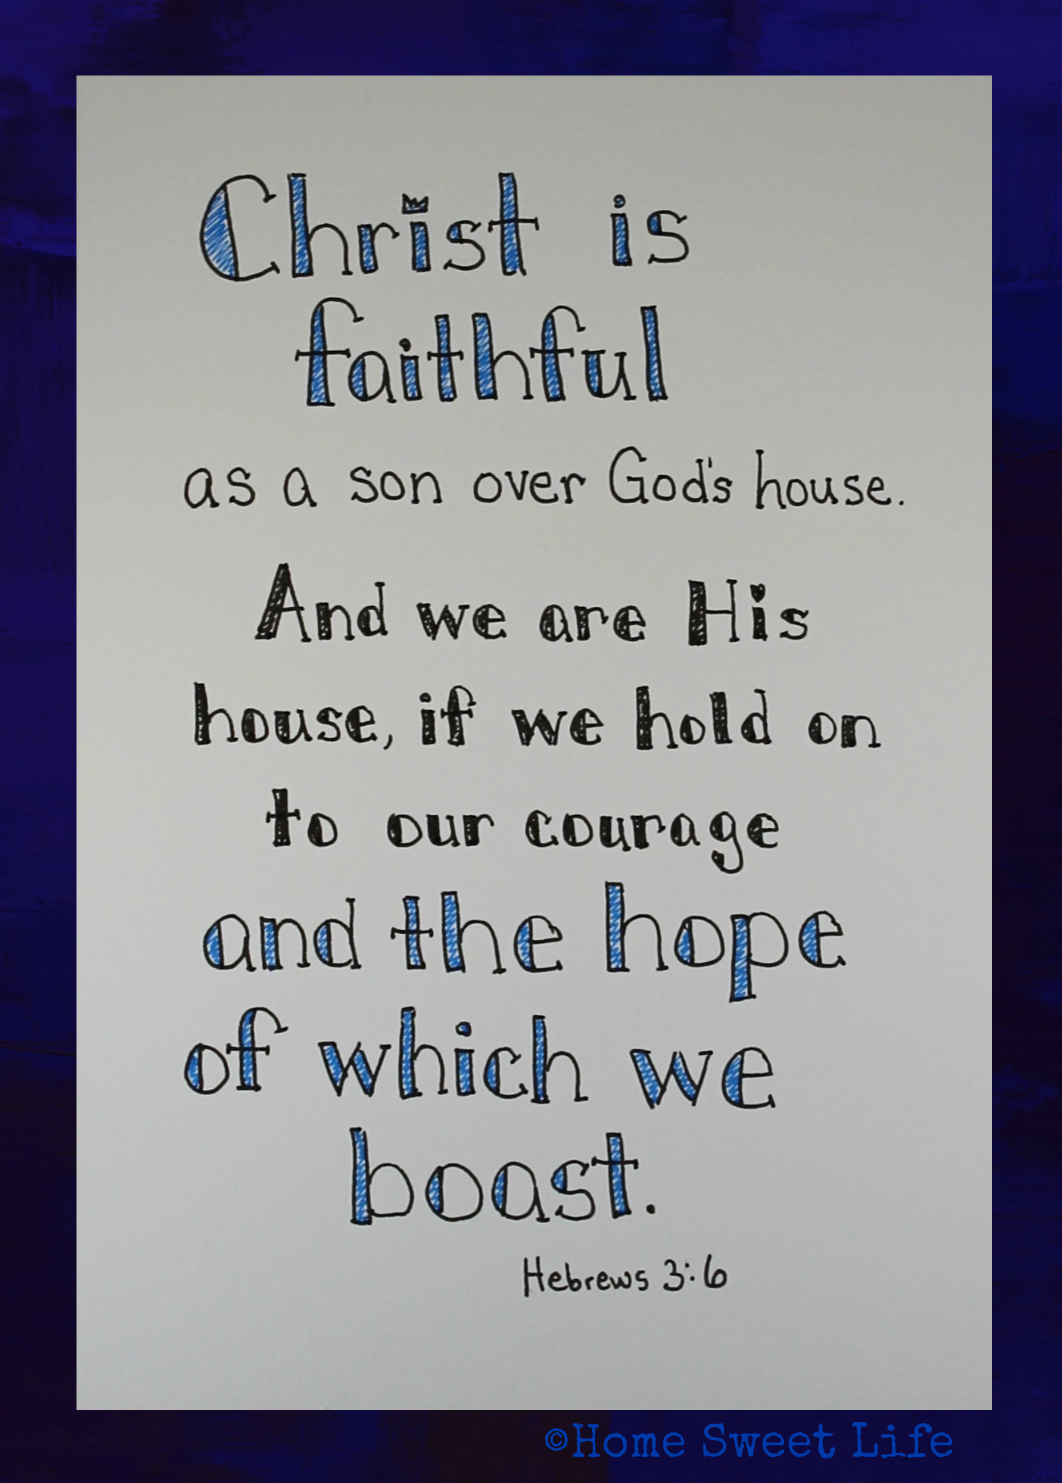 Christ is
faithful
as a son over God's house.
And we are His
house, if we hold on
to our courage
and the hope
of which we
boast.
Hebrews 3:6
©Home Sweet Life